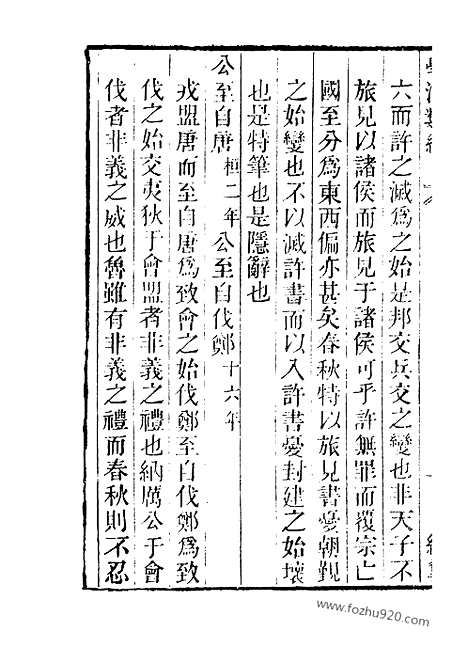 六而許之滅為之始是邦交兵交之變也非天子不
旅見以諸侯而旅見于諸侯可乎許無罪而覆宗亡
國至分為東西偏亦甚矣春秋特以旅見書憂朝覲
之始變也不以滅許書而以入許書憂封建之始壞
也是特筆也是隱辭也
公至自唐桓二年公至自伐鄭十六年
戎盟唐而至自唐為致會之始伐鄭至自伐鄭為致
伐之始交夷狄于會盟者非義之禮也納厲公于會
伐者非義之威也魯雖有非義之禮而春秋則不忍
www.fozhu920.com